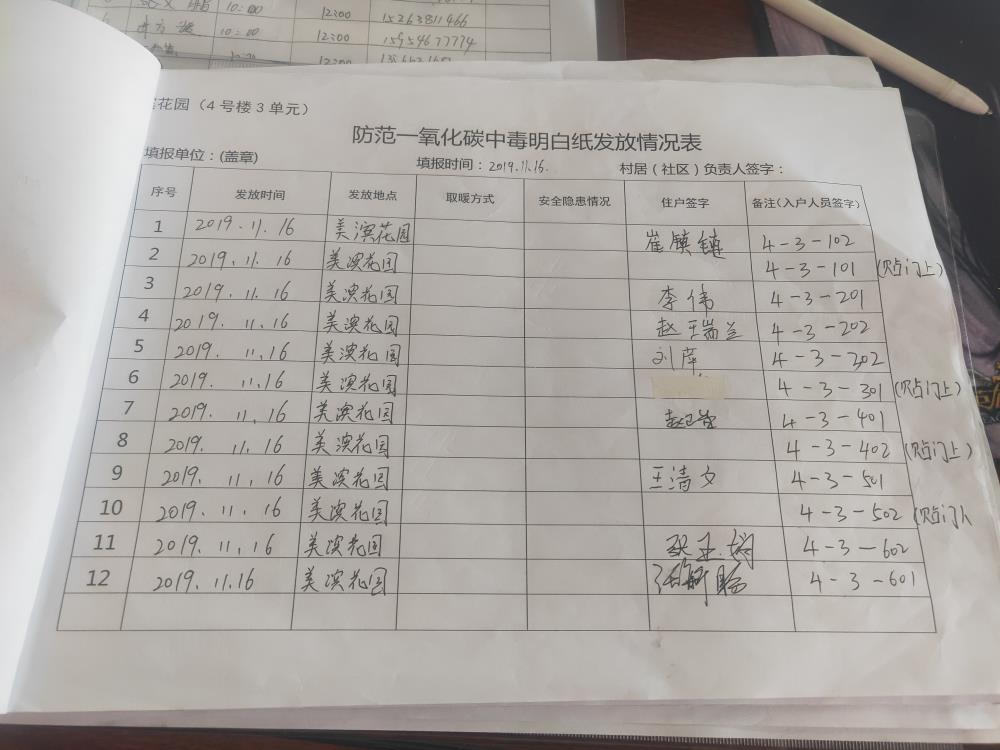 10:00 12:00 15263811466
10:00 12:00 15954677774
12:00
花园（4号楼3单元）
防范一氧化碳中毒明白纸发放情况表
填报单位：(盖章) 填报时间：2019.11.16. 村居（社区）负责人签字：
序号 发放时间 发放地点 取暖方式 安全隐患情况 住户签字 备注（入户人员签字）
1 2019.11.16 美滨花园 崔镇镜 4-3-102
2 2019.11.16 美滨花园 4-3-101 (贴门上)
3 2019.11.16 美滨花园 李伟 4-3-201
4 2019.11.16 美滨花园 赵瑞兰 4-3-202
5 2019.11.16 美滨花园 刘萍 4-3-302
6 2019.11.16 美滨花园 4-3-301 (贴门上)
7 2019.11.16 美滨花园 4-3-401
8 2019.11.16 美滨花园 4-3-402 (贴门上)
9 2019.11.16 美滨花园 王清文 4-3-501
10 2019.11.16 美滨花园 4-3-502 (贴门
11 2019.11.16 美滨花园 4-3-602
12 2019.11.16 美滨花园 4-3-601